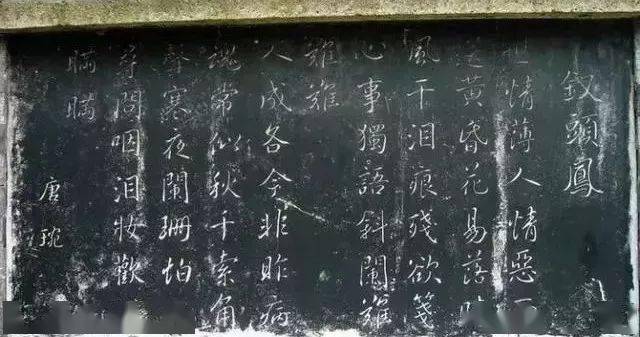 釵頭鳳
世情薄人情惡
送黃昏花易落
風干泪痕殘欲箋
心事獨語斜闌難
難難
人成各今非昨病
魂常似秋千索角
聲寒夜闌珊怕
尋問咽泪妝歡
瞞瞞
唐琬